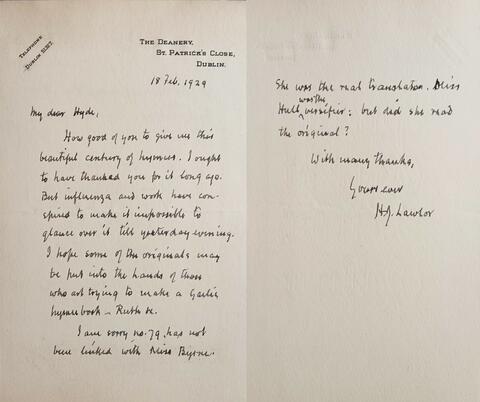 TELEPHONE
DUBLIN
THE DEANERY,
ST. PATRICK'S CLOSE,
DUBLIN.
18 Feb. 1929
My dear Hyde,
How good of you to give me this
beautiful century of hymns. I ought
to have thanked you for it long ago.
But influenza and work have con-
spired to make it impossible to
glance over it till yesterday evening.
I hope some of the originals may
be put into the hands of those
who are trying to make a Gaelic
hymnbook – Ruth &c.
I am sorry no. 79 has not
been linked with Miss Byrne.
She was the real translator. Miss
Hull was the versifier: but did she read
the original?
With many thanks,
Yours ever
H.J. Lawlor